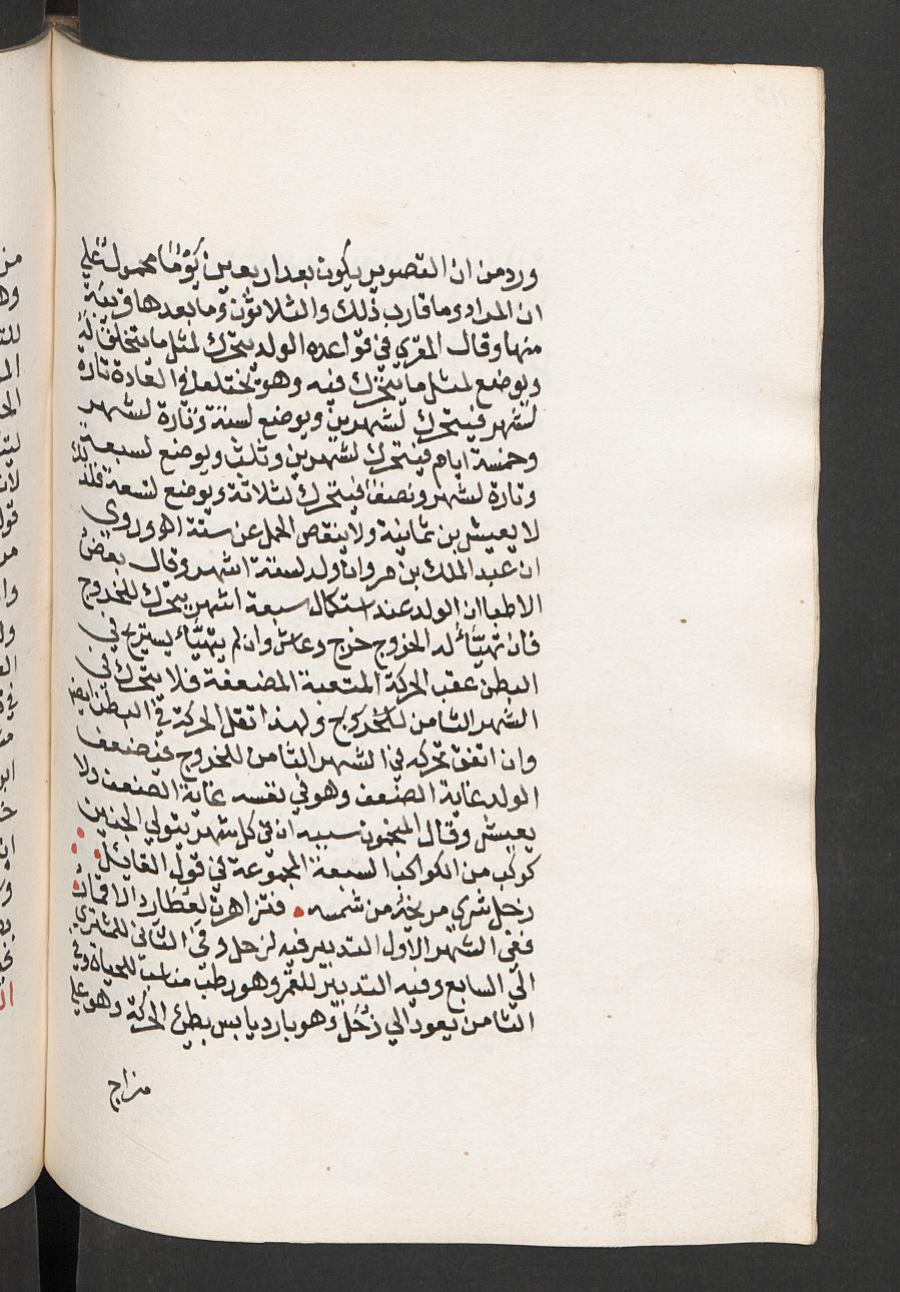 ورد من ان التصوير يكون بعد اربعين يوما محمول علي
ان المراد وما قارب ذلك والثلاثون وما بعدها قريبة
منها وقال المقري في قواعده الولد يتحرك لمثل ما يتخلق له
ويوضع لمثل ما يتحرك فيه وهو يختلف في العادة تارة
لشهر فيتحرك لشهرين ويوضع لستة وتارة لشهر
وخمسة ايام فيتحرك لشهرين وثلث ويوضع لسبعة
وتارة لشهر ونصف فيتحرك لثلاثة ويوضع لتسعة فلذلك
لا يعيش بن ثمانية ولا ينقص الحمل عن ستة اه وروي
ان عبد الملك بن مروان ولد لستة اشهر وقال بعض
الاطبا ان الولد عند استكمال سبعة اشهر يتحرك للخروج
فان تهيّأ له الخروج خرج وعاش وان لم يتهيّاء يستريح في
البطن عقب الحركة المتعبة المضعفة فلا يتحرك في
الشهر الثامن للخروج ولهذا تقل الحركة في البطن ايضا
وان اتفق تحركه في الشهر الثامن للخروج فيضعف
الولد غاية الضعف وهو في نفسه غاية الضعف ولا
يعيش وقال المنجمون سببه ان في كل شهر يتولي الجنين
كوكب من الكواكب السبعة المجموعة في قول القايل
زحل شري مريخه من شمسه فتزاهرت لعطارد الاقمار
ففي الشهر الاول التدبير فيه لزحل وفي الثاني للمشتري
الي السابع وفيه التدبير للقمر وهو رطب مناسب للحياة وفي
الثامن يعود الي زحل وهو بارد يابس بطئ الحركة وهو علي
مزاج